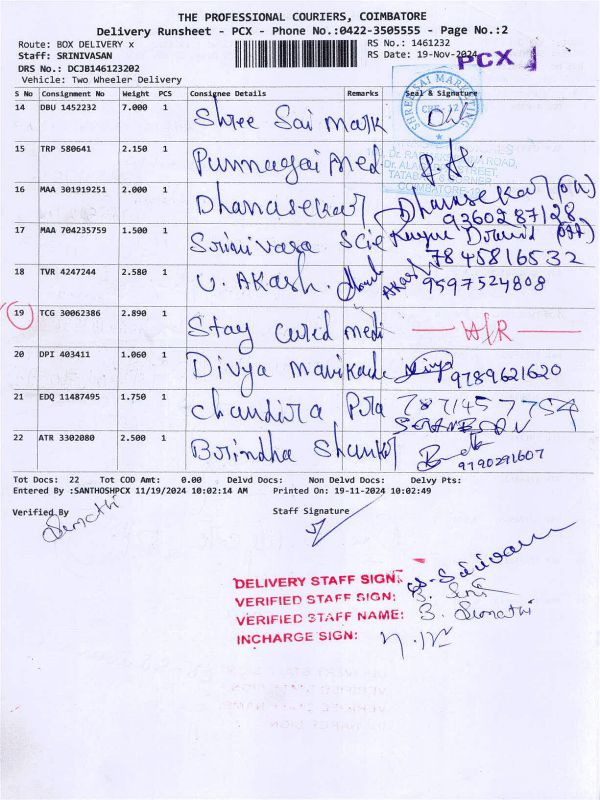 THE PROFESSIONAL COURIERS, COIMBATORE
Delivery Runsheet - PCX - Phone No.:0422-3505555 - Page No.:2
Route: BOX DELIVERY x RS No.: 1461232
Staff: SRINIVASAN RS Date: 19-Nov-2024 PCX
DRS No.: DCJB146123202
Vehicle: Two Wheeler Delivery
S No Consignment No Weight PCS Consignee Details Remarks Seal & Signature
14 DBU 1452232 7.000 1 Shree Sai mark SHREE SAI MARKETING
15 TRP 580641 2.150 1 Punnagai med
COIMBATORE
16 MAA 301919251 2.000 1 Dhanasekar Dhanasekar
9360287128
17 MAA 704235759 1.500 1 Srinivasa Scie
7845816532
18 TVR 4247244 2.580 1 U. Akash. Akash 9597524808
19 TCG 30062386 2.890 1 Stay cured medi
20 DPI 403411 1.060 1 Divya manikande Divya 9789621620
21 EDQ 11487495 1.750 1 chandira Pra 7871457754
22 ATR 3302080 2.500 1 Brindha Shanker 9790291607
Tot Docs: 22 Tot COD Amt: 0.00 Delvd Docs: Non Delvd Docs: Delvy Pts:
Entered By :SANTHOSHPCX 11/19/2024 10:02:14 AM Printed On: 19-11-2024 10:02:49
Verified By Staff Signature
Sumathi
DELIVERY STAFF SIGN:
VERIFIED STAFF SIGN:
VERIFIED STAFF NAME: S. Sumathi
INCHARGE SIGN: